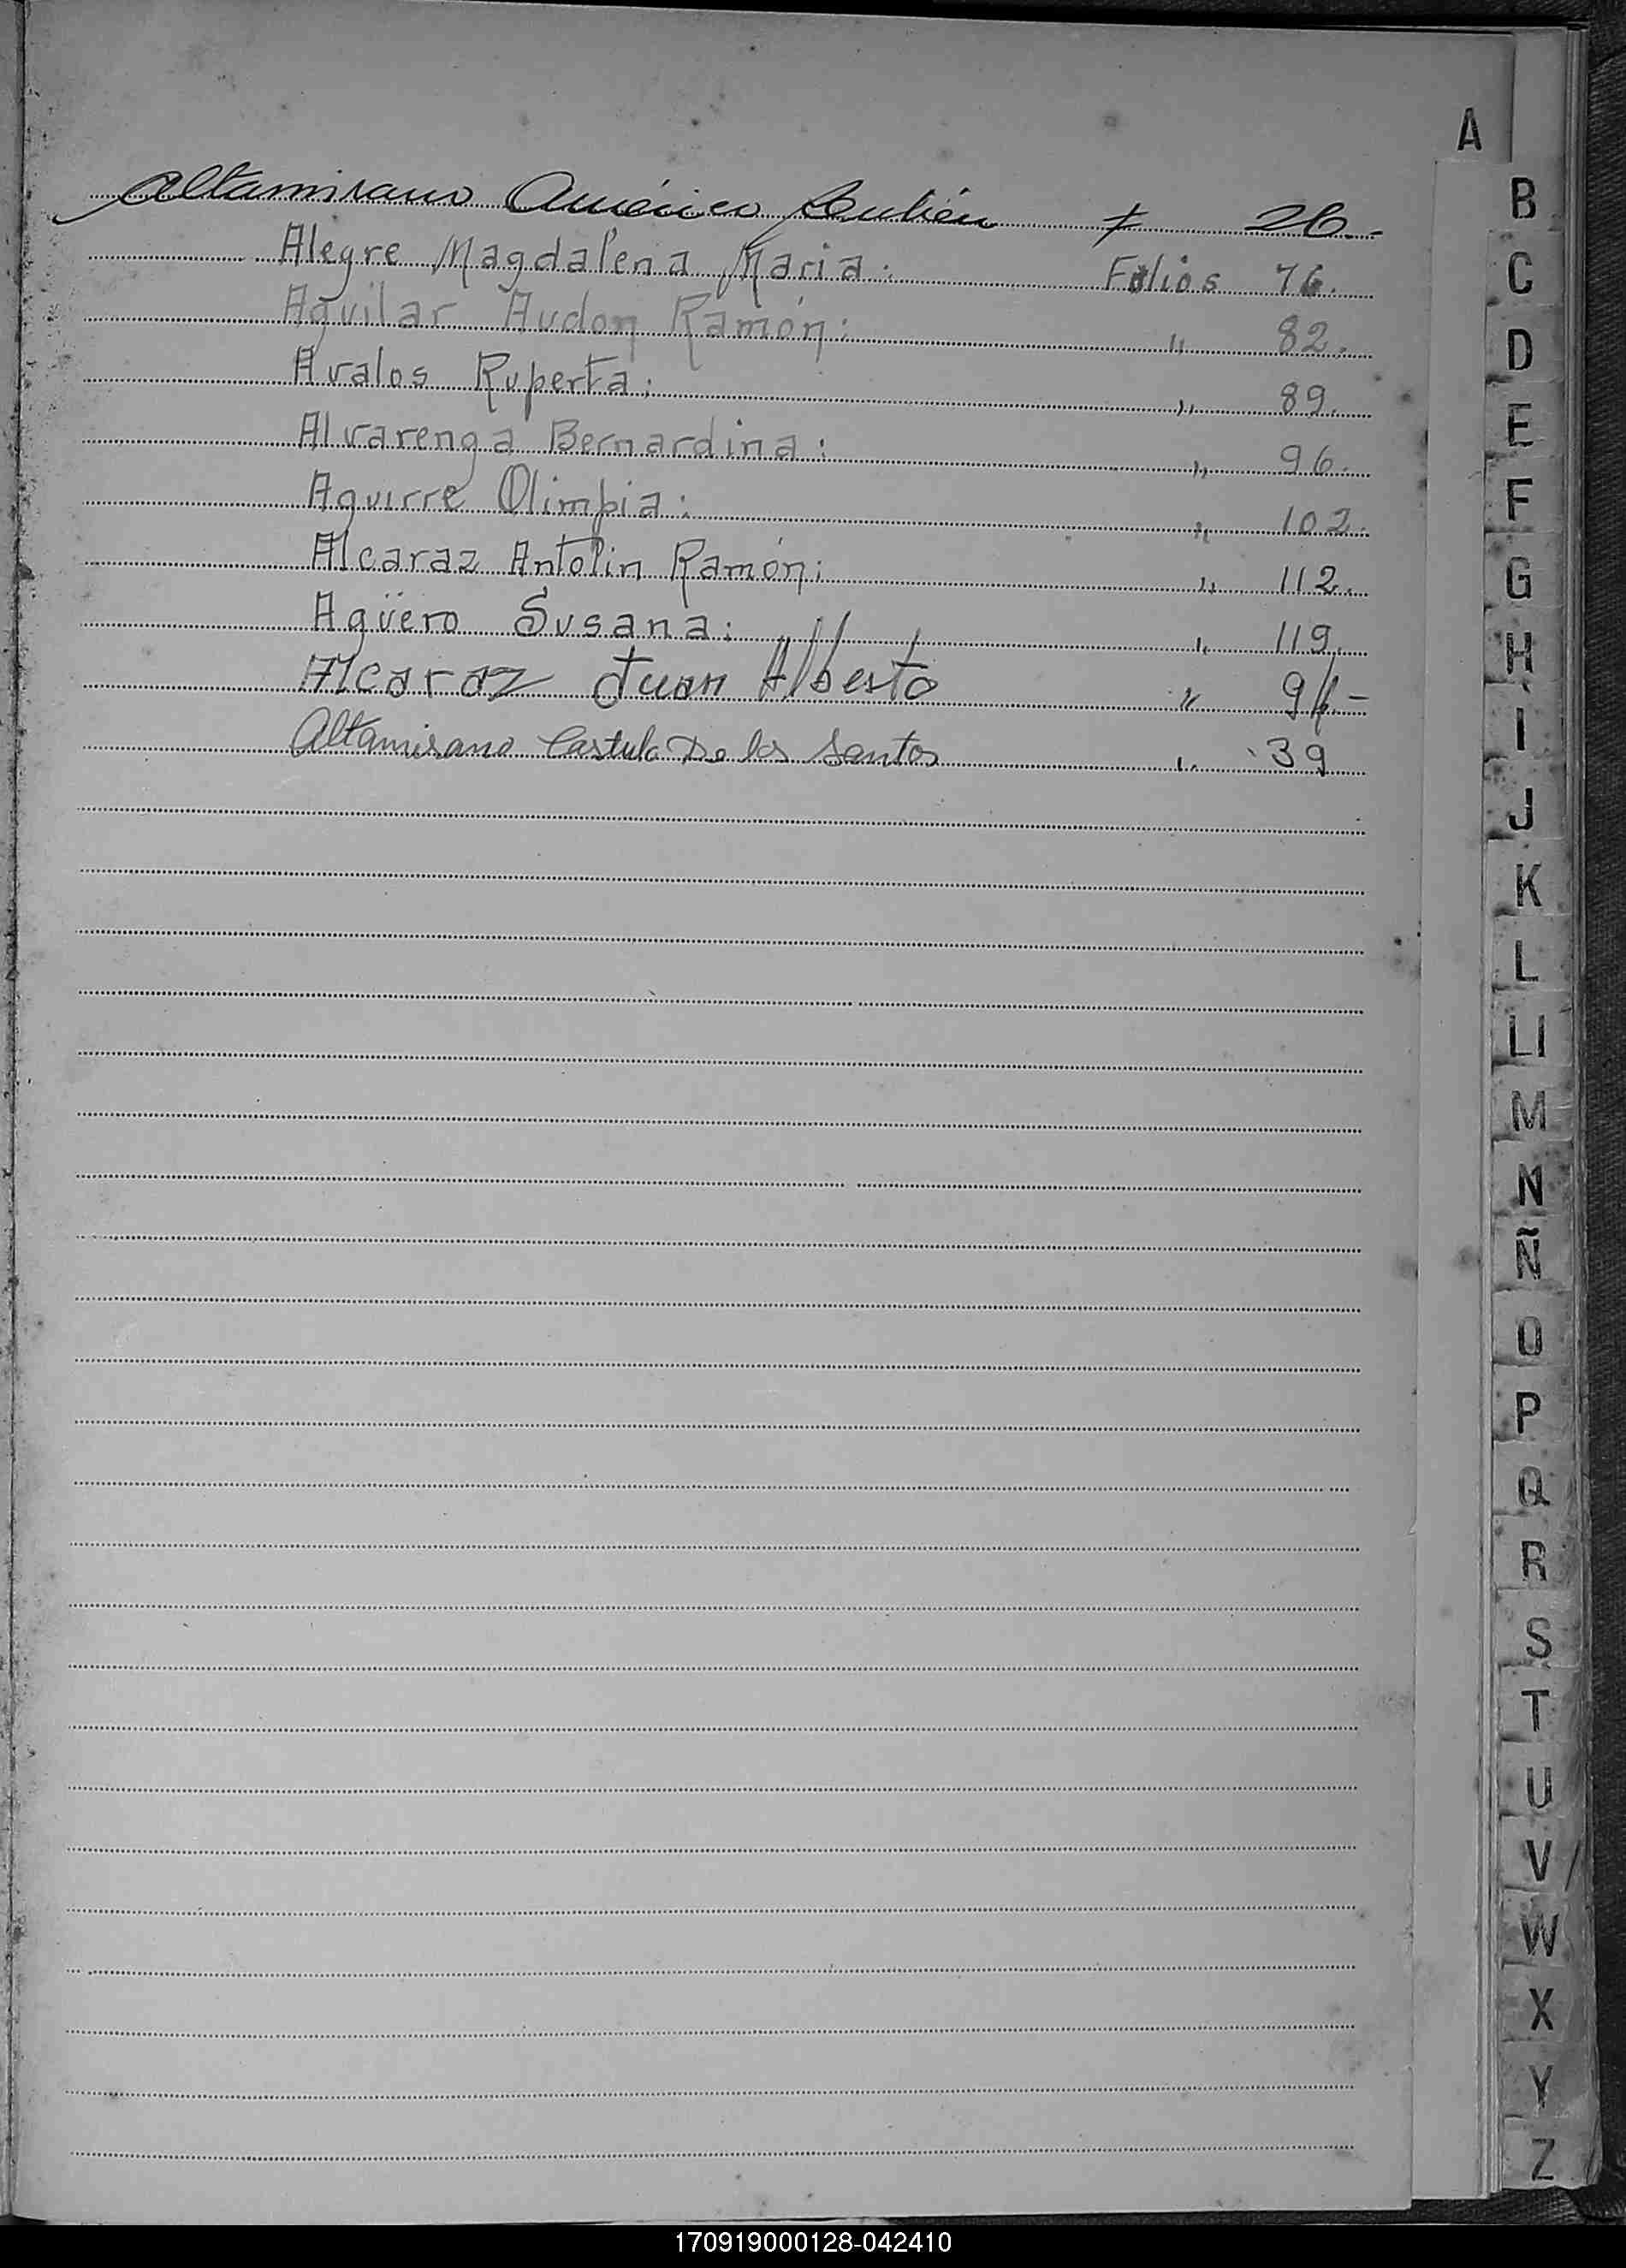 A
Altamirano Américo 26.-
Alegre Magdalena Maria: Folios 76.
Aguilar Audon Ramón: " 82.
Avalos Ruperta: " 89.
Alvarenga Bernardina: " 96.
Aguirre Olimpia: " 102.
Alcaraz Antolin Ramón: " 112.
Agüero Susana: " 119.
Alcaraz Juan Alberto "
Altamirano Castula De los Santos " 39
B
C
D
E
F
G
H
I
J
K
L
Ll
M
N
Ñ
O
P
Q
R
S
T
U
V
W
X
Y
Z
170919000128-042410